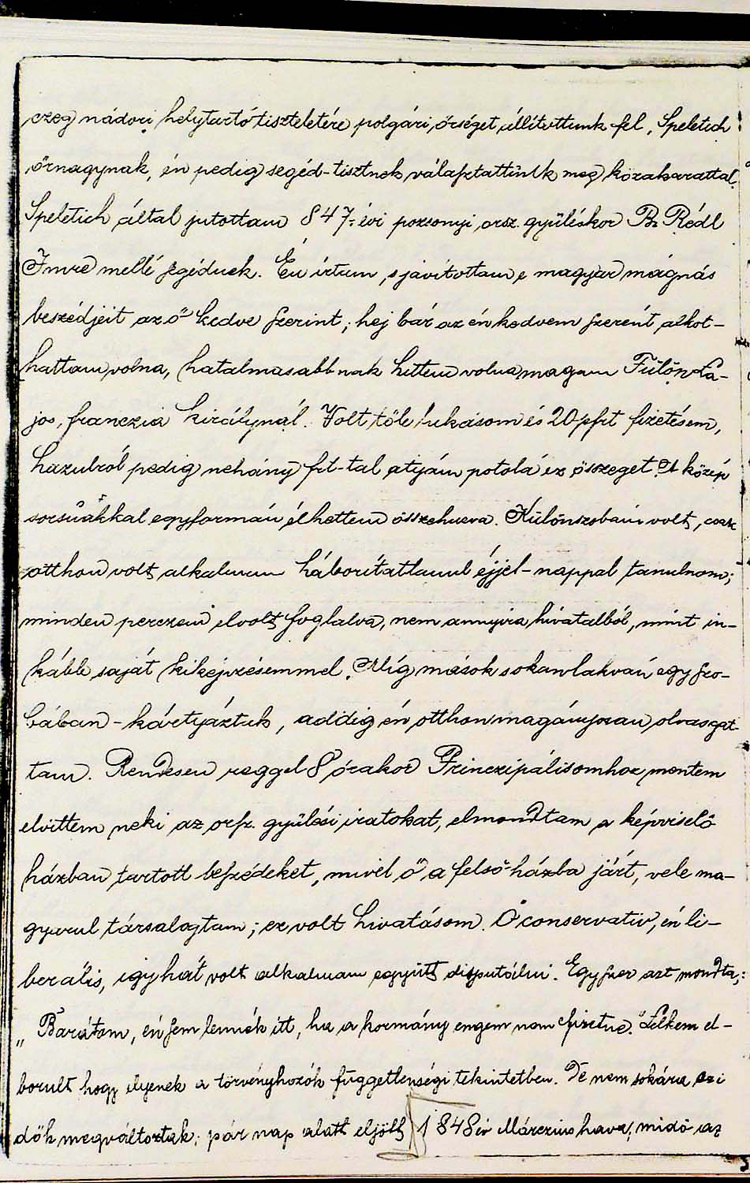 czeg nádori helytartó tiszteletére polgári őrséget állítottunk fel, Speletich
őrnagynak, én pedig segéd-tisztnek választattunk meg közakarattal.
Speletich által jutottam 847-évi pozsonyi orsz. gyűléskor Br. Rédl
Imre mellé segédnek. Én írtam, s javítottam e magyar mágnás
beszédjeit az ő kedve szerint; hej bár az én kedvem szerént alkot-
hattam volna, hatalmasabbnak hittem volna magam Fülöp La-
jos, franczia királynál. Volt tőle lakásom és 20 pfrt fizetésem,
hazulról pedig nehány frt-tal atyám potolá ez összeget. A közép
sorsúakkal egyformán élhettem összehuzva. Különszobám volt, csak
otthon volt alkalmam háborítatlanul éjjel-nappal tanulnom;
minden perczem elvolt foglalva, nem annyira hivatalból, mint in-
kább saját kiképzésemmel. Míg mások sokan lakván egy szo-
bában - kártyáztak, addig én otthon magányosan olvasgat-
tam. Rendesen reggel 8 órakor Princzipálisomhoz mentem
elvittem neki az orsz. gyűlési iratokat, elmondtam a képviselő
házban tartott beszédeket, mivel ő a felső-házba járt, vele ma-
gyarul társalogtam; ez volt hivatásom. Ő conservativ, én li-
berális, így hát volt alkalmam együtt disputálni. Egyszer azt mondta;:
„Barátom, én sem lennék itt, ha a kormány engem nem fizetne." Lelkem el-
borult hogy ilyenek a törvényhozók függetlenségi tekintetben. De nem sokára az i
dők megváltoztak; pár nap alatt eljött 1848 év Márczius hava, midő az